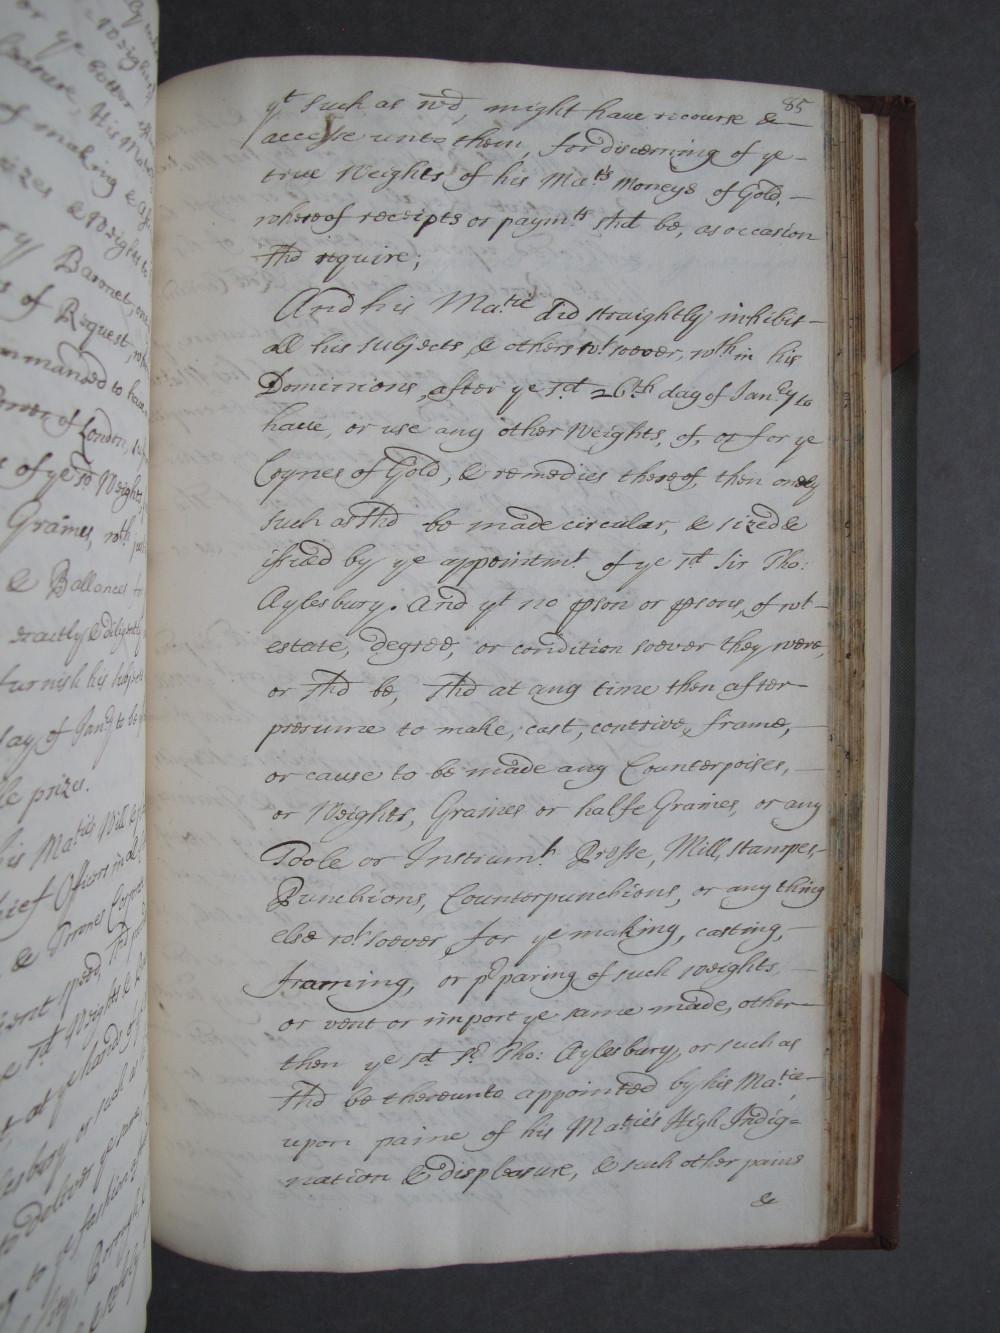 85
yt such as wd, might haue recourse &
accesse unto them, for discerning of ye
true Weights of his Mats. Moneys of Gold,
whereof receipts or paymts shd be, as occasion
shd require;
And his Matie. did straightly inhibit
all his subjects & others wt. soever, wth.in his
Dominions, after ye sd. 26th. day of Jan:ry to
haue, or use any other Weights, of, or for ye
Coynes of Gold, & remedies thereof, then onely
such as shd be made circular, & sized &
issued by ye appointmt of ye sd. Sir Tho:
Aylesbury. And yt no pson or psons, of wt
estate, degree, or condition soever they were,
or shd be, shd at any time then after
presume to make, cast, contrive, frame,
or cause to be made any Counterpoises,
or Weights, Graines or halfe Graines, or any
Toole or Instrumt. Presse, Mill, stampes,
Punctions, Counterpunctions, or any thing
else wt. soever for ye making, casting,
framing, or pparing of such weights
or vent or import ye same made, other
then ye sd. Sr. Tho: Aylesbury, or such as
shd be thereunto appointed by his Matie.
upon paine of his Maties High Indig=
nation & displeasure, & such other pains
&
his Maties Will
le prizes.
Baronet,
of Request,
mmanded to haue
of London,
Graines, wth.
& Ballances
exactly & diligently
furnish his
day of Jan:ry to be